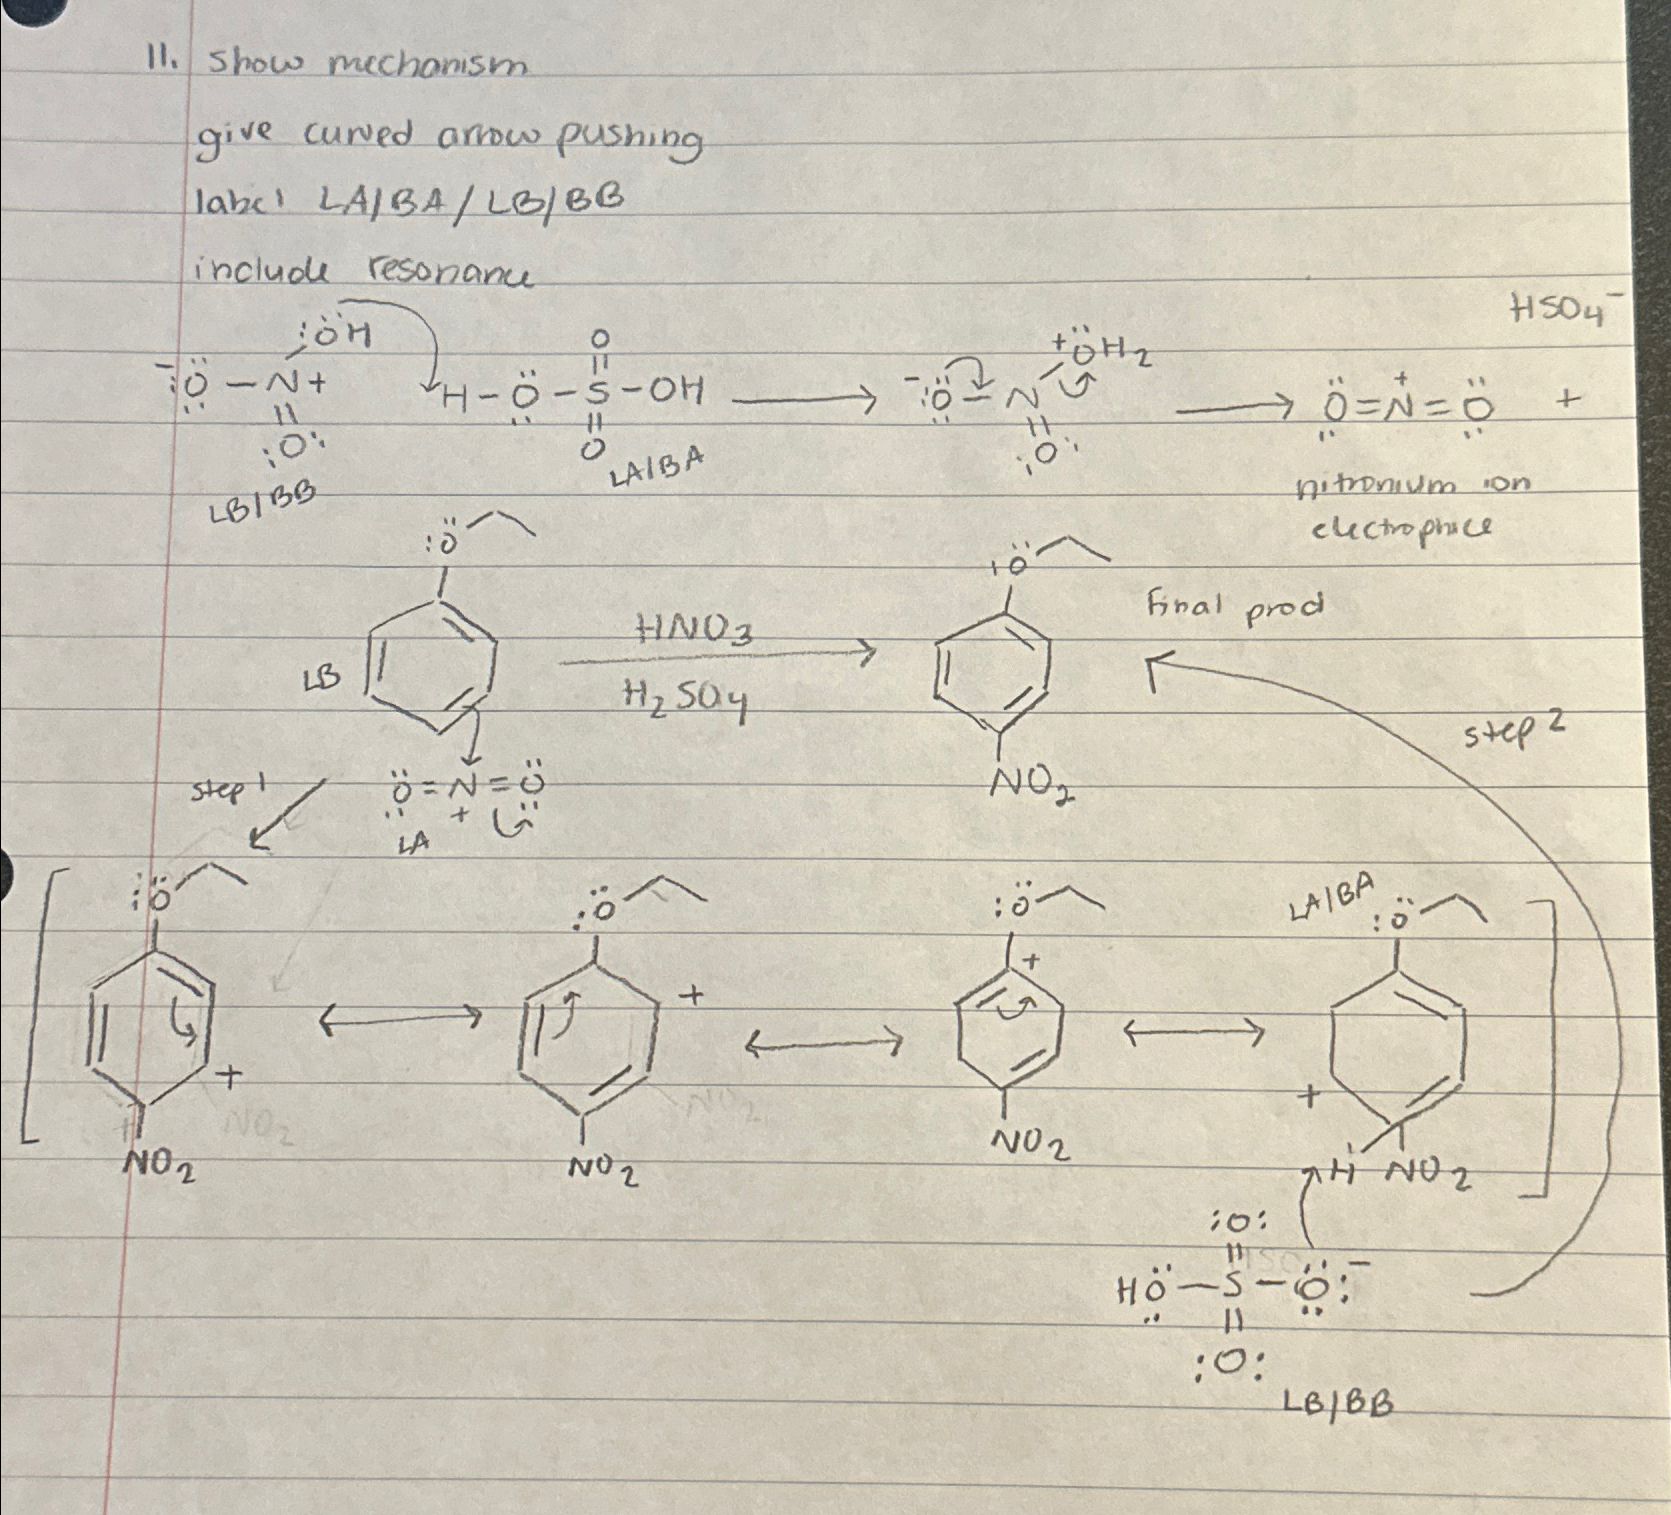 11. Show mechanism
give curved arrow pushing
label LA/BA / LB/BB
include resonance
HSO4⁻
:ÖH
⁻:Ö – N+
:O:
LB/BB
O
H – Ö – S – OH
O
LA/BA
+ÖH2
⁻:Ö – N
:O:
Ö = N⁺ = Ö +
nitronium ion
electrophile
:Ö
LB
HNO3
H2SO4
:Ö
NO2
Final prod
step 2
step 1
Ö = N = Ö
+
LA
:Ö
+
NO2
:Ö
+
NO2
:Ö
+
NO2
LA/BA
:Ö
+
H NO2
:O:
HÖ – S – Ö:⁻
:O:
LB/BB